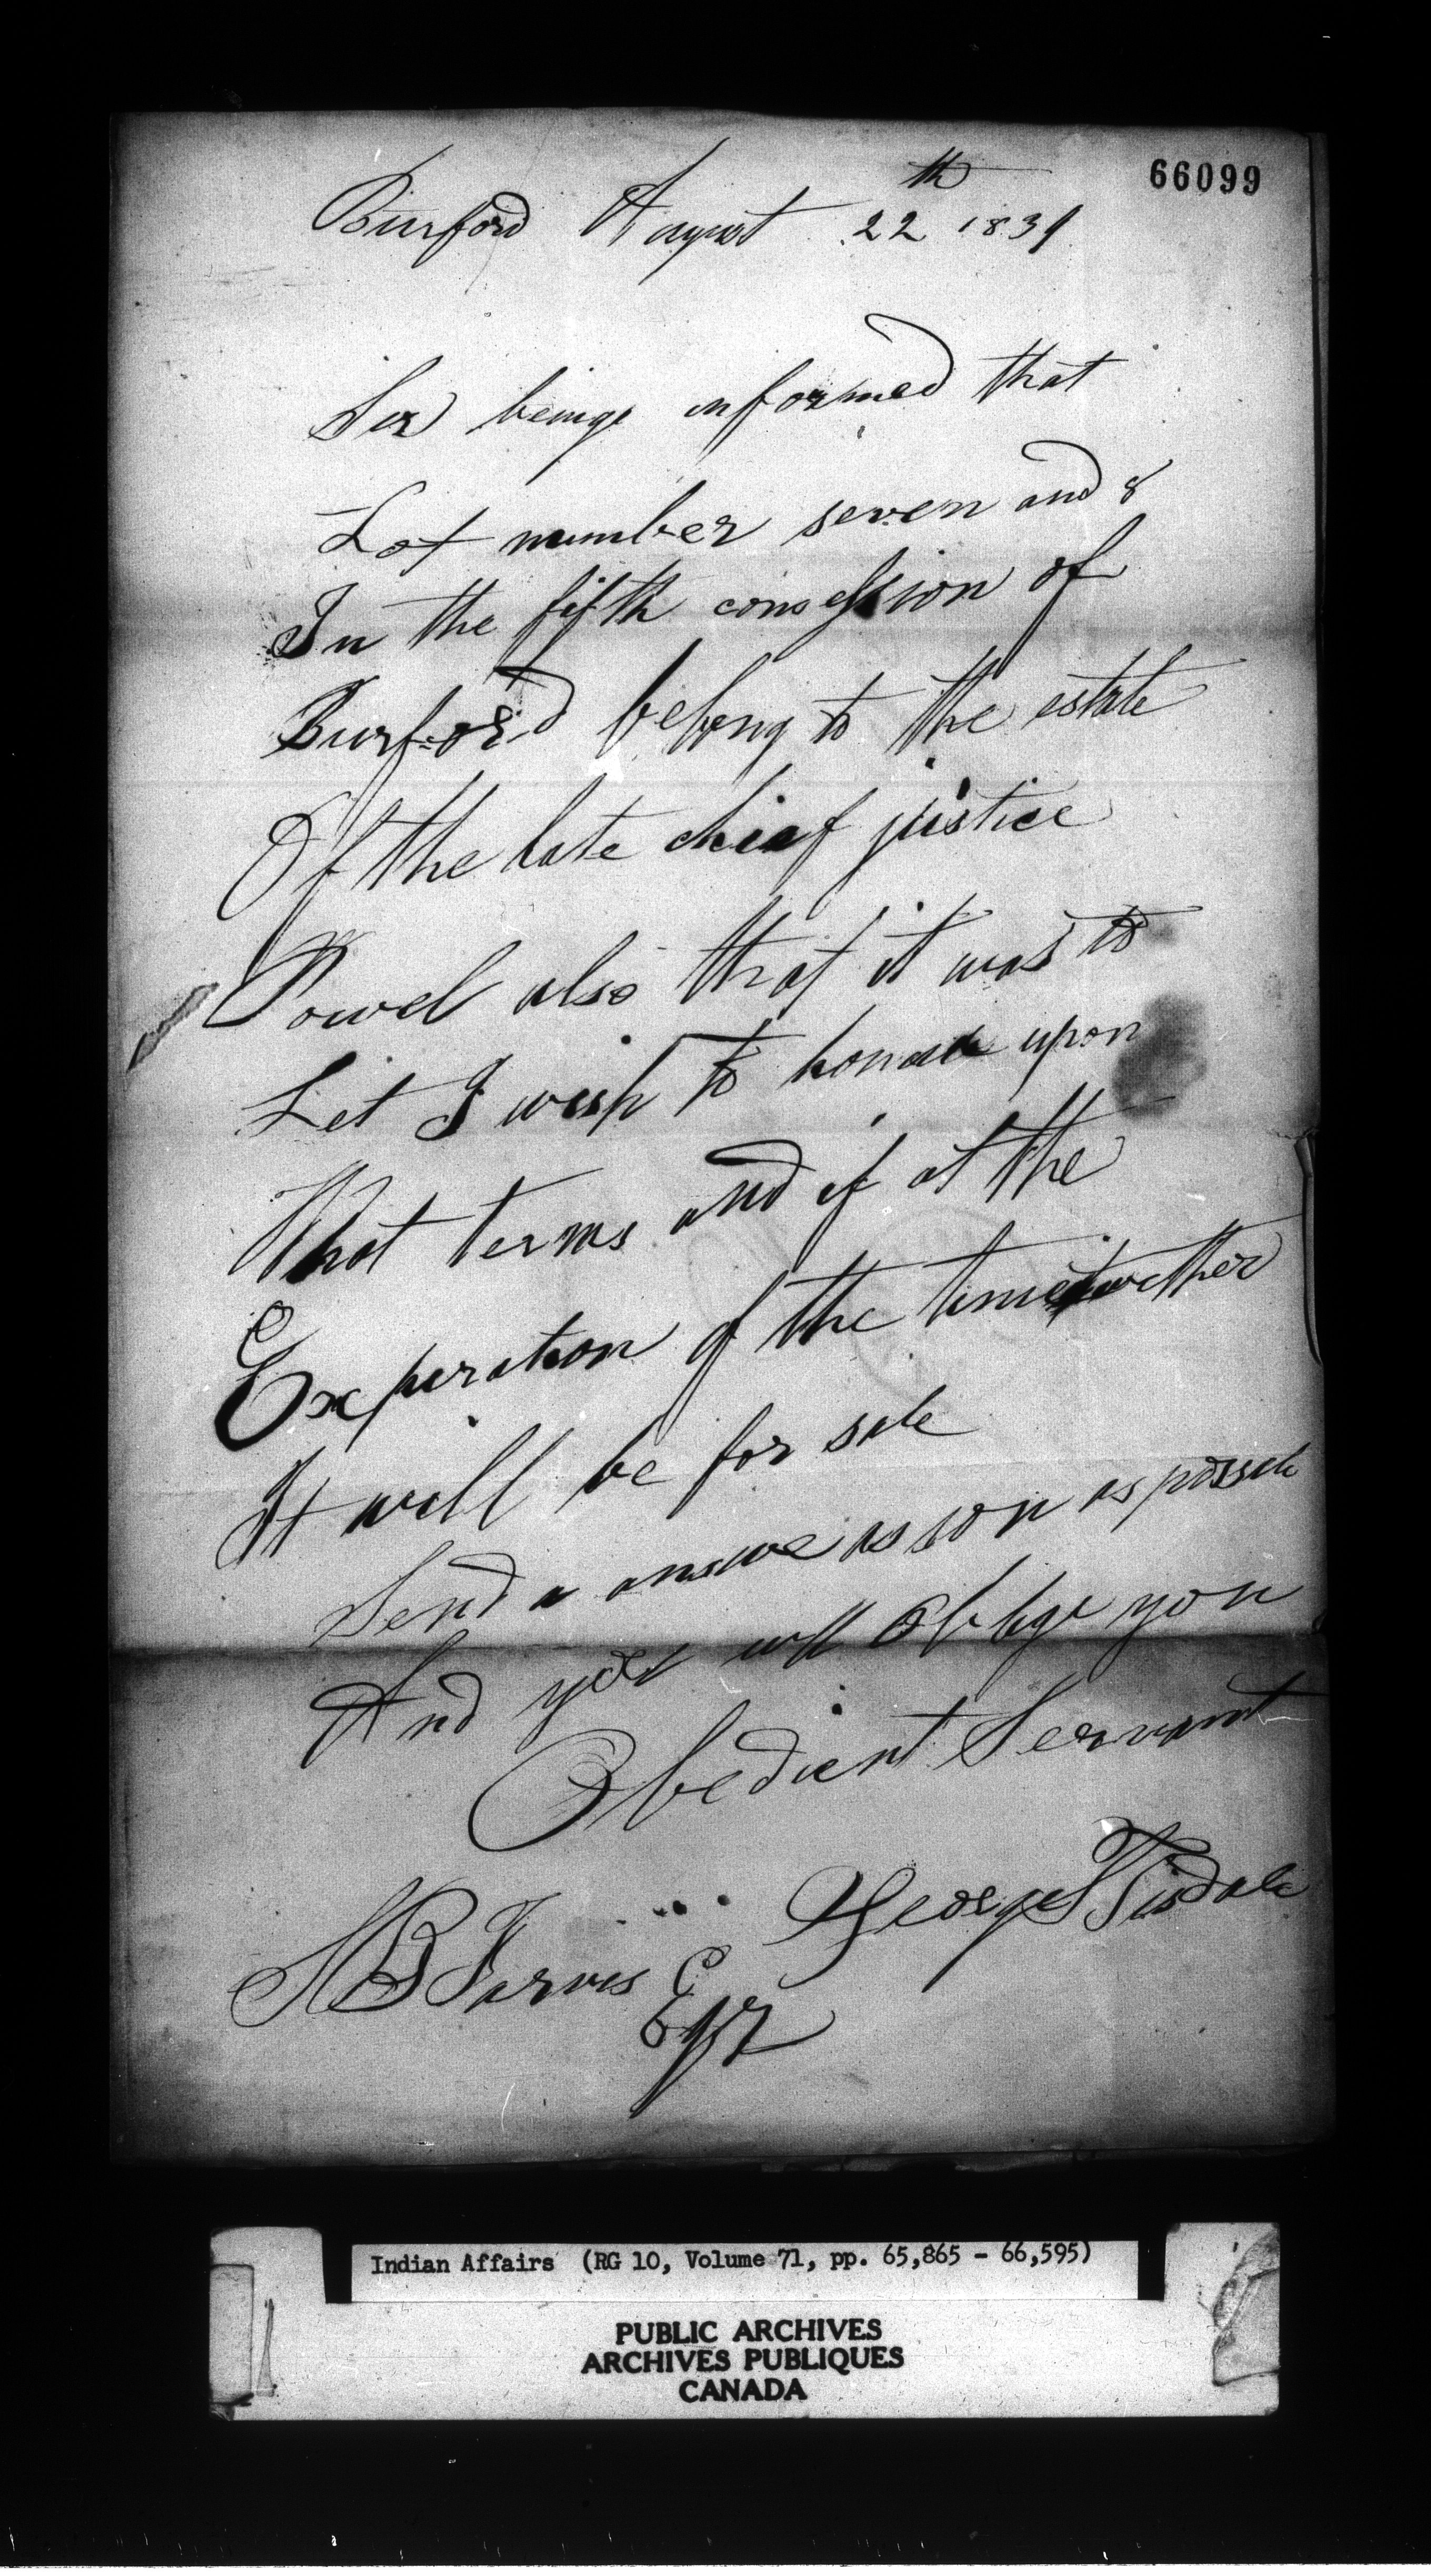 66099
Burford August 22th 1839
Sir beinge informed that
Lot number seven and 8
In the fifth consession of
Burford belong to the estate
Of the late chief justice
Powel also that it was to
Let I wish to upon
What terms and if at the
Experation of the time wether
It will be for sale
Send a answe as son as possele
And you will oblige you
Obedient Servant
George Tisdale
S B Jarves
Esqr
Indian Affairs (RG 10, Volume 71, pp. 65,865 - 66,595)
PUBLIC ARCHIVES
ARCHIVES PUBLIQUES
CANADA